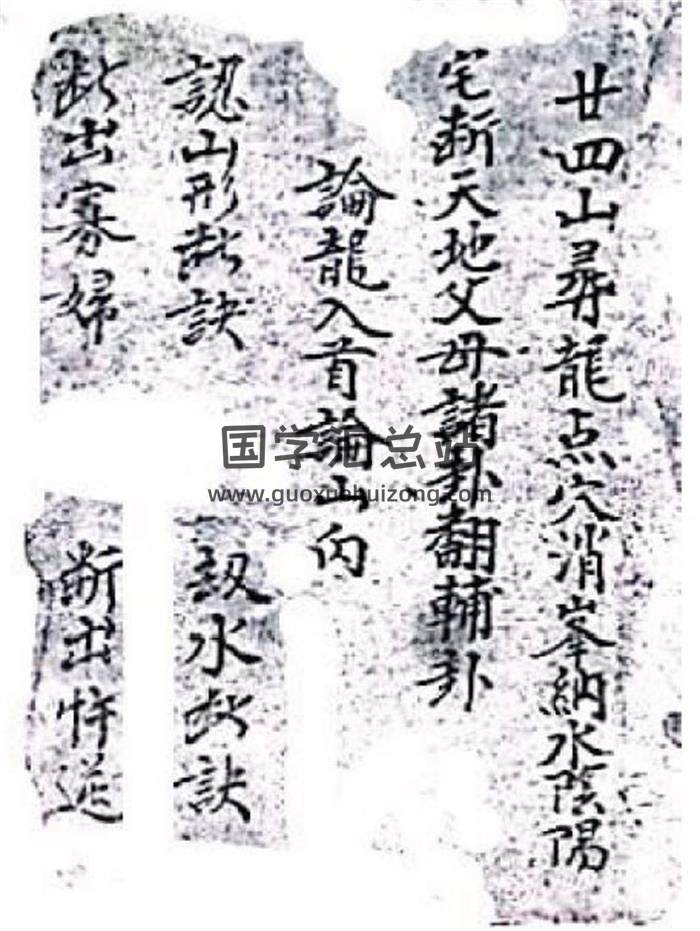 廿四山葬龍点穴消峯納水陰陽
宅断天地父母諸卦翻輔卦
論龍入首論山內
認山形断訣
水断訣
断出寡婦
断出忤逆
国学汇总站
www.guoxuehuizong.com